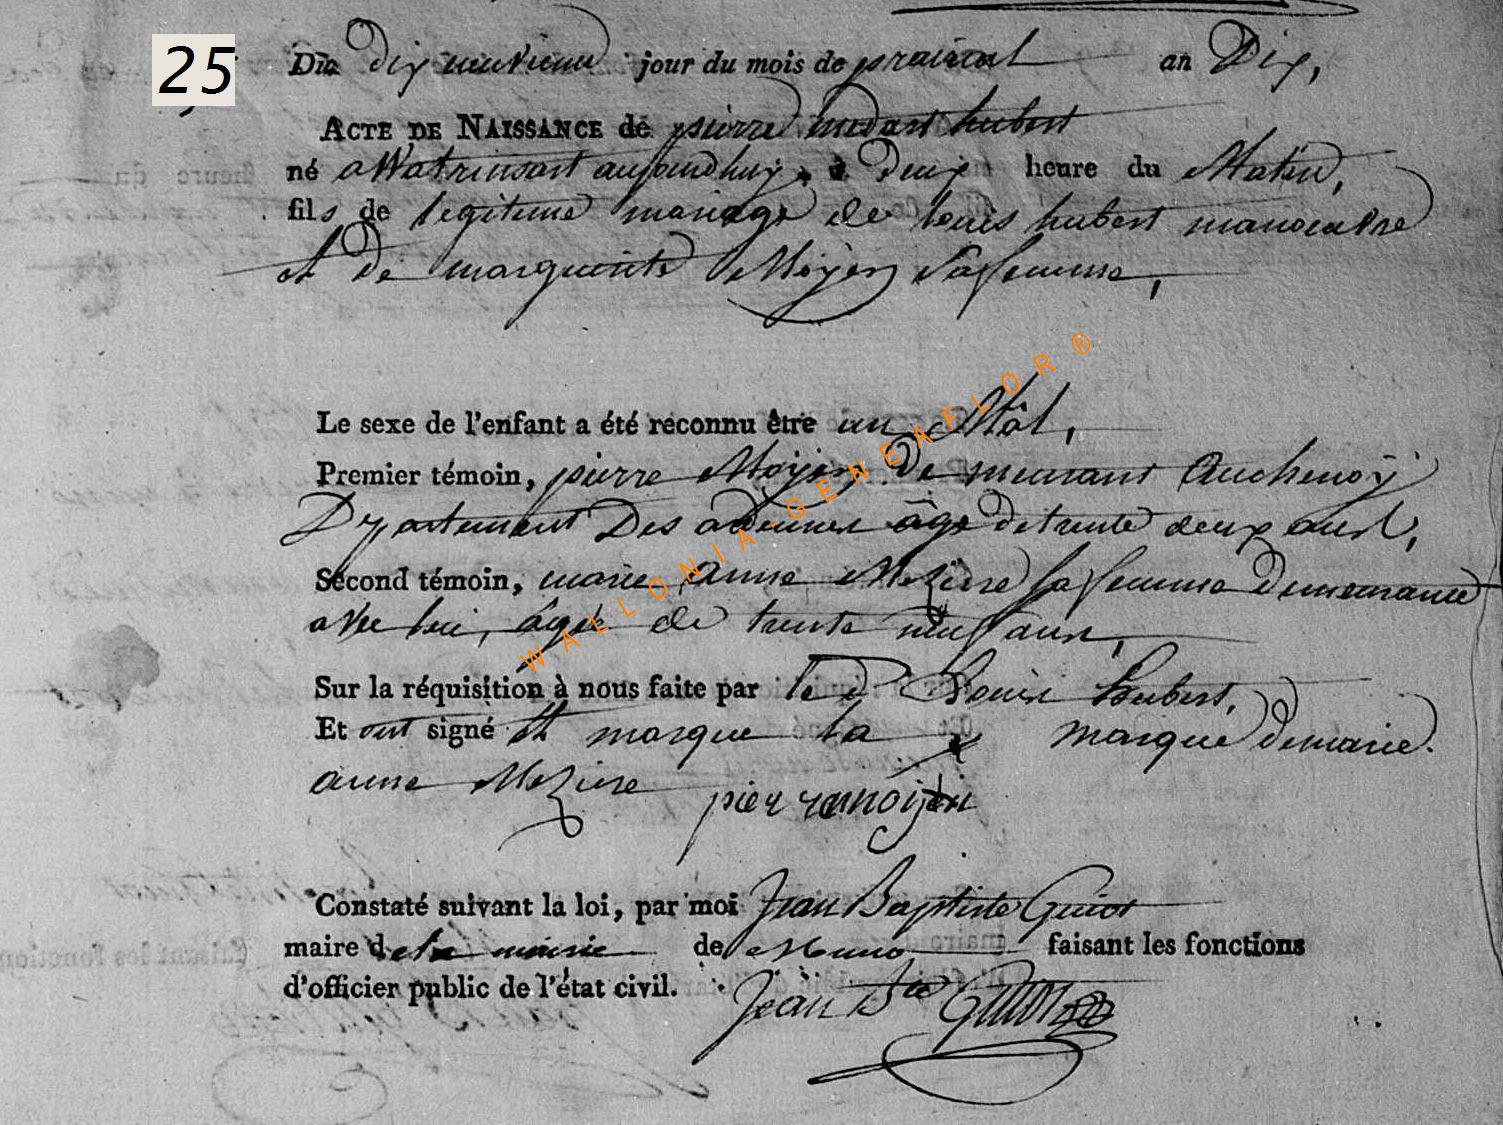 25
Du dix neuvieme jour du mois de prairial an Dix,
ACTE DE NAISSANCE de pierre medart hubert
né a Watrinsart aujourdhuy, à Deux heure du Matin,
fils de legitime mariage de louis hubert manoeuvre
et de marguerite Moÿen Sa femme,
Le sexe de l'enfant a été reconnu être un Mâl,
Premier témoin, pierre Moÿen De meurant Auchenoÿ
Departement Des adennes âge de trente deux ans,
Second témoin, marie anne Meziere sa femme Demeurante
avec lui, âgée de trente neuf ans,
Sur la réquisition à nous faite par le d Louis hubert,
Et ont signé et marque la x marque de marie
anne Meziere pierre moijen
Constaté suivant la loi, par moi Jean Baptiste Guiot
maire de la mairie de Muno faisant les fonctions
d'officier public de l'état civil. Jean Bte Guiot
WALLONIA-GENEAFLOR®